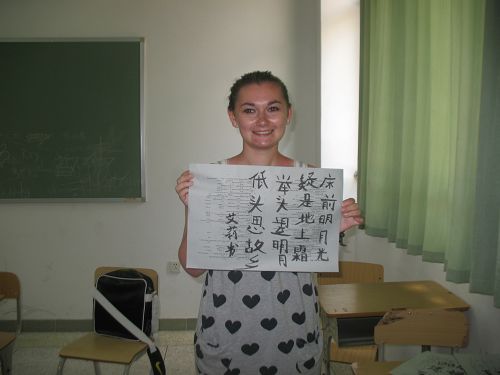 床前明月光
疑是地上霜
举头望明月
低头思故乡
艾莉书